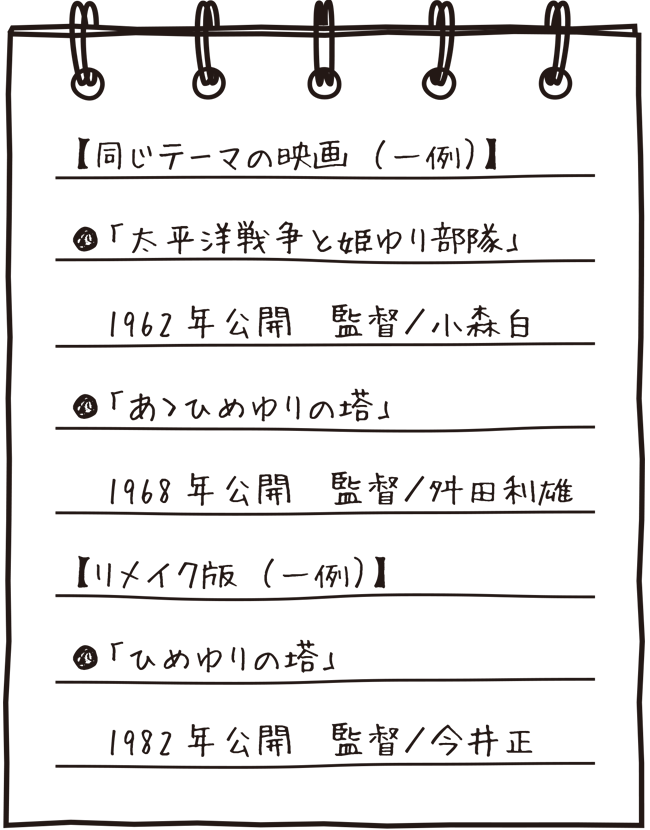 【同じテーマの映画（一例）】
●「太平洋戦争と姫ゆり部隊」
1962年公開　監督／小森白
●「あゝひめゆりの塔」
1968年公開　監督／舛田利雄
【リメイク版（一例）】
●「ひめゆりの塔」
1982年公開　監督／今井正